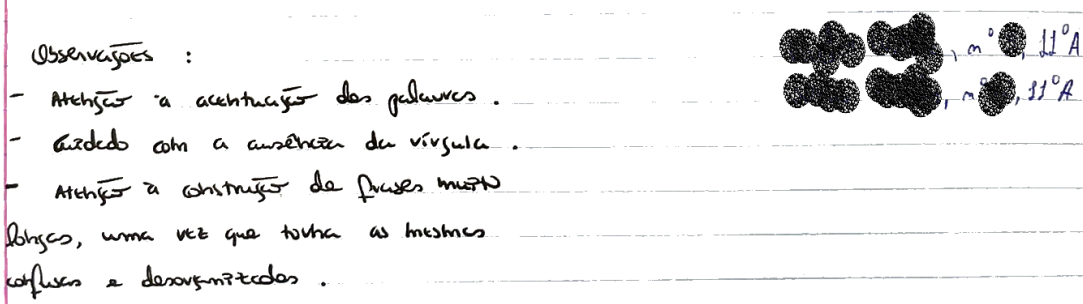 Observações :
, nº , 11ºA
- Atenção à acentuação das palavras .
, nº , 11ºA
- Cuidado com a ausência da vírgula .
- Atenção à construção de frases muito
longas, uma vez que torna as mesmas
confusas e desorganizadas .